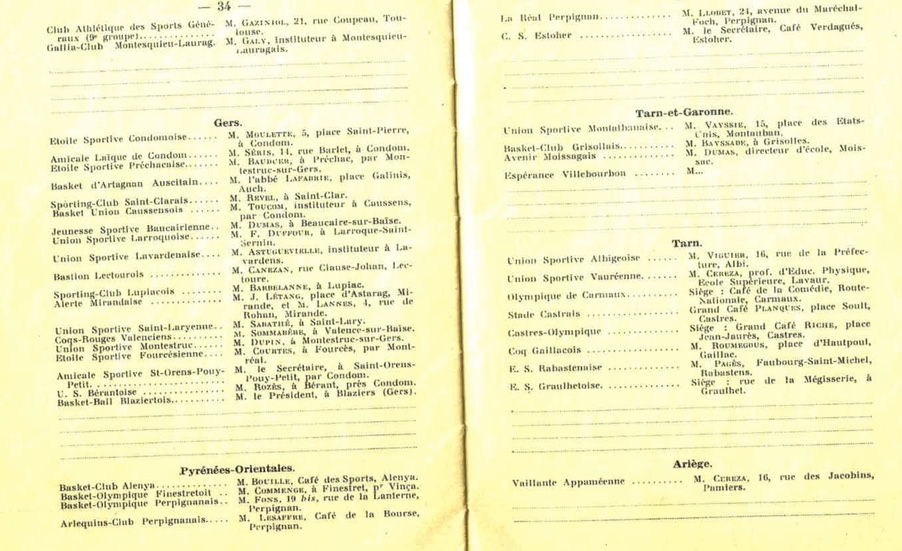 — 34 —
Club Athlétique des Sports Géné-
raux (9e groupe)..............
M. GAZINIOL, 21, rue Coupeau, Tou-
louse.
Gallia-Club Montesquieu-Laurag.
M. GALY, instituteur à Montesquieu-
Lauragais.
Gers.
Etoile Sportive Condomoise......
M. MOULETTE, 5, place Saint-Pierre,
à Condom.
Amicale Laïque de Condom......
M. SÉRIS, 14, rue Barlet, à Condom.
Etoile Sportive Préchacaise.....
M. BAUDUER, à Préchac, par Mon-
testruc-sur-Gers.
Basket d'Artagnan Auscitain....
M. l'abbé LAFABRIE, place Galinis,
Auch.
Sporting-Club Saint-Clarais.....
M. REVEL, à Saint-Clar.
Basket Union Caussensois ......
M. TOUCOM, instituteur à Caussens,
par Condom.
Jeunesse Sportive Baucairienne..
M. DUMAS, à Beaucaire-sur-Baïse.
Union Sportive Larroquoise.....
M. F. DUFFOUR, à Larroque-Saint-
Sernin.
Union Sportive Lavardenaise....
M. ASTUGUEVIELLE, instituteur à La-
vardens.
Bastion Lectourois .............
M. CANEZAN, rue Clause-Johan, Lec-
toure.
Sporting-Club Lupiacois ........
M. BARBELANNE, à Lupiac.
Alerte Mirandaise ..............
M. J. LÉTANG, place d'Astarag, Mi-
rande, et M. LANNES, 4, rue de
Rohan, Mirande.
Union Sportive Saint-Laryenne..
M. SABATHÉ, à Saint-Lary.
Coqs-Rouges Valenciens.........
M. SOMMABÈRE, à Valence-sur-Baïse.
Union Sportive Montestruc......
M. DUPIN, à Montestruc-sur-Gers.
Etoile Sportive Fourcésienne....
M. COURTES, à Fourcès, par Mont-
réal.
Amicale Sportive St-Orens-Pouy-
Petit.......................
M. le Secrétaire, à Saint-Orens-
Pouy-Petit, par Condom.
U. S. Bérantoise ...............
M. ROZÈS, à Bérant, près Condom.
Basket-Ball Blaziertois..........
M. le Président, à Blaziers (Gers).
Pyrénées-Orientales.
Basket-Club Alenya.............
M. BOUILLE, Café des Sports, Alenya.
Basket-Olympique Finestretoit ..
M. COMMENGE, à Finestret, pr Vinça.
Basket-Olympique Perpignanais..
M. FONS, 19 bis, rue de la Lanterne,
Perpignan.
Arlequins-Club Perpignanais....
M. LESAFFRE, Café de la Bourse,
Perpignan.
La Réal Perpignan..............
M. LLOBET, 24, avenue du Maréchal-
Foch, Perpignan.
C. S. Estoher ..................
M. le Secrétaire, Café Verdagués,
Estoher.
Tarn-et-Garonne.
Union Sportive Montalbanaise...
M. VAYSSIE, 15, place des Etats-
Unis, Montauban.
Basket-Club Grisollais...........
M. BAYSSADE, à Grisolles.
Avenir Moissagais ..............
M. DUMAS, directeur d'école, Mois-
sac.
Espérance Villebourbon .........
M...
Tarn.
Union Sportive Albigeoise ......
M. VIGUIER, 16, rue de la Préfec-
ture, Albi.
Union Sportive Vauréenne.......
M. CEREZA, prof. d'Educ. Physique,
Ecole Supérieure, Lavaur.
Olympique de Carmaux..........
Siège : Café de la Comédie, Route-
Nationale, Carmaux.
Stade Castrais .................
Grand Café PLANQUES, place Soult,
Castres.
Castres-Olympique ..............
Siège : Grand Café RICHE, place
Jean-Jaurès, Castres.
Coq Gaillacois ..................
M. ROUMEGOUS, place d'Hautpoul,
Gaillac.
E. S. Rabastenaise ..............
M. PAGÈS, Faubourg-Saint-Michel,
Rabastens.
E. S. Graulhetoise...............
Siège : rue de la Mégisserie, à
Graulhet.
Ariège.
Vaillante Appaméenne ..........
M. CEREZA, 16, rue des Jacobins,
Pamiers.